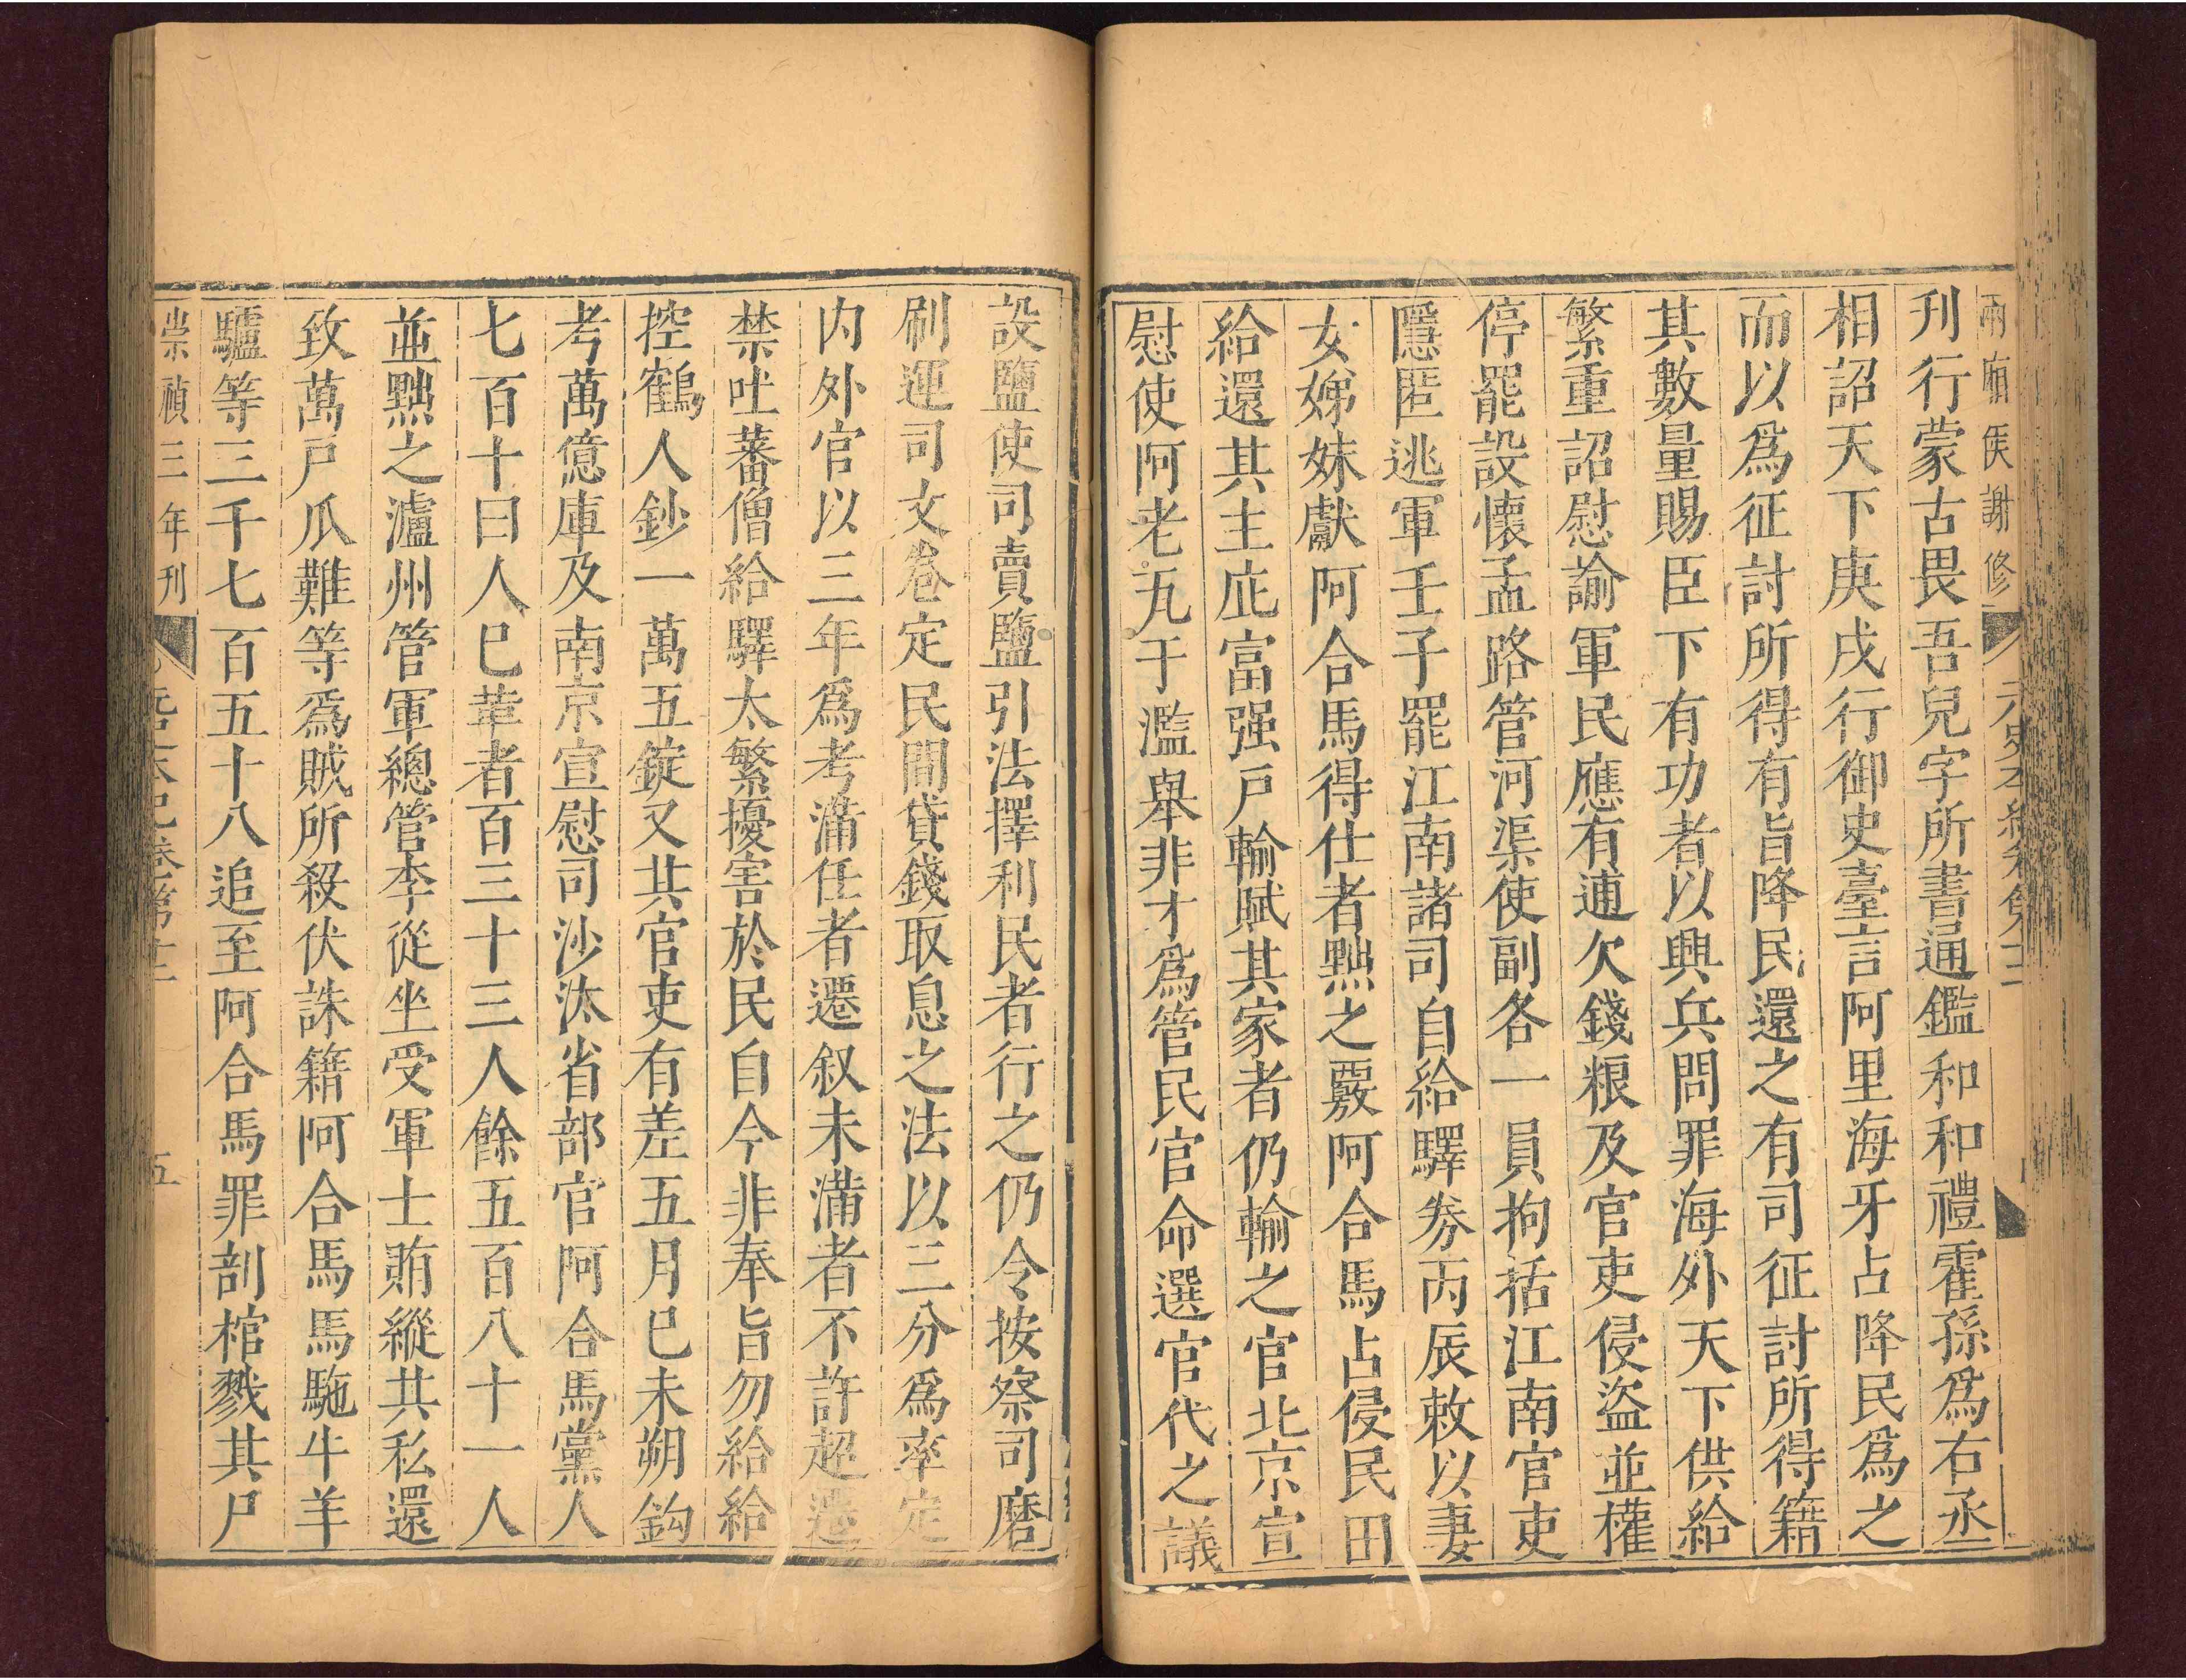 兩廂侯謝修
刋行蒙古畏吾兒字所書通鑑和和禮霍孫爲右丞
相詔天下庚戌行御史臺言阿里海牙占降民爲之
而以爲征討所得有旨降民還之有司征討所得籍
其數量賜臣下有功者以興兵問罪海外天下供給
繁重詔慰諭軍民應有逋欠錢粮及官吏侵盜並權
停罷設懷孟路管河渠使副各一員拘括江南官吏
隱匿逃軍壬子罷江南諸司自給驛券丙辰敕以妻
女娣妹獻阿合馬得仕者黜之覈阿合馬占侵民田
給還其主庇富强戶輸賦其家者仍輸之官北京宣
慰使阿老瓦于濫舉非才爲管民官命選官代之議
設鹽使司賣鹽引法擇利民者行之仍令按察司磨
刷運司文卷定民間貸錢取息之法以三分爲率定
内外官以三年爲考滿任者遷叙未滿者不許超遷
禁吐蕃僧給驛太繁擾害於民自今非奉旨勿給給
控鶴人鈔一萬五錠又其官吏有差五月巳未朔鈎
考萬億庫及南京宣慰司沙汰省部官阿合馬黨人
七百十曰人巳革者百三十三人餘五百八十一人
並黜之瀘州管軍總管李從坐受軍士賄縱其私還
致萬戶爪難等爲賊所殺伏誅籍阿合馬馬駞牛羊
驢等三千七百五十八追至阿合馬罪剖棺戮其尸
崇禎三年刋 五